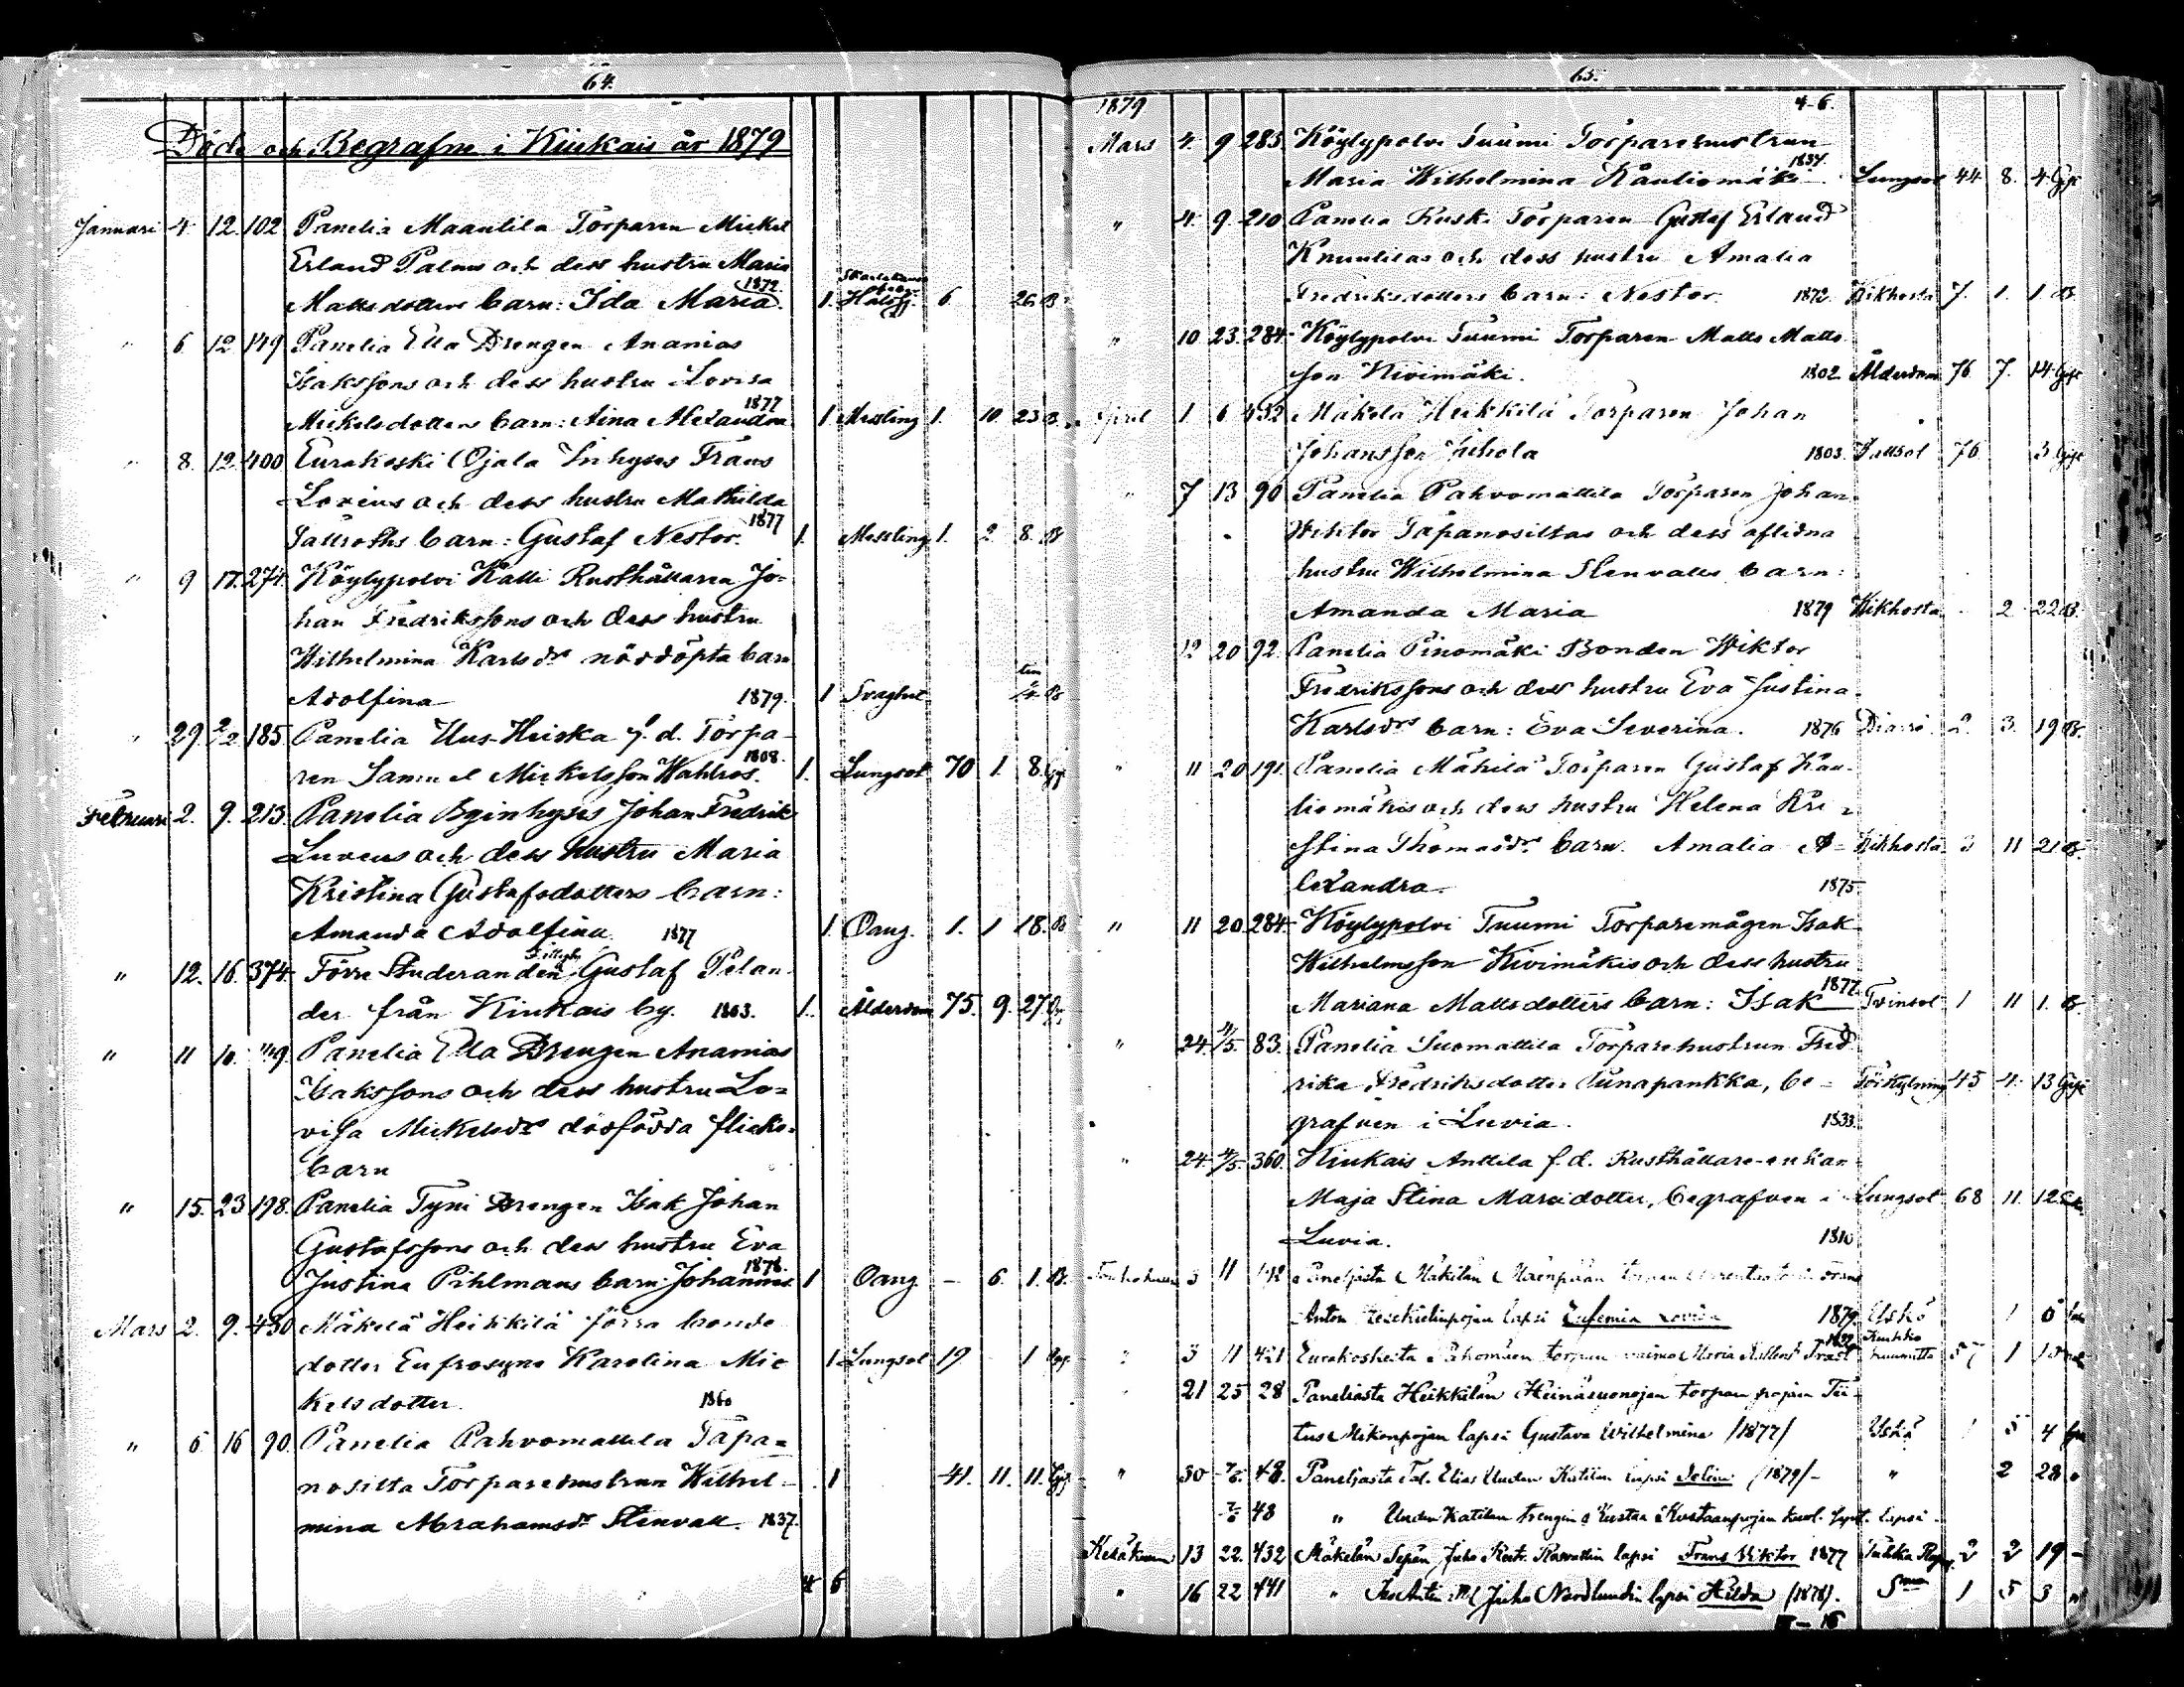 64.
Döde och Begrafne i Kiukais år 1879
Januari 4. 12. 102 Panelia Maanlila Torparen Mickel
Erland Palmus och dess hustru Maria
Matts dotters barn: Ida Maria. 1872. 1. Skarlakans 6. 26 B.
" 6. 12 149 Panelia Ella Drengen Ananias
Isakssons och dess hustru Lovisa
Mickelsdotters barn: Aina Alexandra 1877 1 Messling 1. 10. 23 B.
" 8. 12. 400 Eurakoski Ojala Inhyses Frans
Lovius och dess hustru Mathilda
barn: Gustaf Nestor. 1877 1. Messling 1. 2 8. B
" 9 17. 274. Köylypolvi Kalli Rusthållaren Jo=
han Fredrikssons och dess hustru
Wilhelmina Karlsdr nöddöpta barn
Adolfina 1879. 1 Svaghet tim B
" 29. 2/2 185. Panelia Uus-Heiska f. d. Torpa-
ren Samuel Mickelsson Wahlros. 1808. 1. Lungsot 70 1. 8. Gg
Februari 2. 9. 213. Panelia Byinhyses Johan Fredrik
och dess hustru Maria
Kristina Gustafsdotters barn:
Amanda Adolfina 1877 1. Oang. 1. 1 18. B
" 12. 16. 374. Förre Studeranden Gustaf Pelan-
der från Kiukais by. 1803. 1. Ålderdom 75. 9. 27
" 11 16. 149. Panelia Ella Drengen Ananias
Isakssons och dess hustru Lo=
visa Mickelsdr dödfödda flicke-
barn
" 15. 23 198. Panelia Tyni Drengen Isak Johan
Gustafssons och dess hustru Eva
Justina Pihlmans barn: Johannes 1878. 1 Oang – 6. 1. B.
Mars 2. 9. 430 Mäkelä Heikkilä förra bonde
dotter Eufrosyne Karolina Mic
kelsdotter. 1860 1 Lungsot 19 1 Ogg.
" 6 16 90. Panelia Pahvomattila Tapa=
nosilta Torparehustrun Wilhel-
mina Abrahamsdr Stenvall. 1837. 1 41. 11. 11. Gg
4 6
65.
1879 4-6.
Mars 4. 9 283 Köylypolvi Tuumi Torparehustrun
Maria Wilhelmina Kauliomäki 1834. Lungsot 44 8. 4 Gg
" 4. 9. 210 Panelia Ruski Torparen Gustaf Erland
Knuutilas och dess hustru Amalia
Fredriksdotters barn: Nestor. 1872. Kikhosta 7. 1. 1 B.
" 10 23. 284 Köylypolvi Tuumi Torparen Matts Matts
son Kivimäki. 1802 Ålderdom 76. 7. 14 Gg
April 1 6 432 Mäkelä Heikkilä Torparen Johan
Johansson 1803. 76 3 Gg
" 7 13 90 Panelia Pahvomattila Torparen Johan
Wiktor Tapanosiltas och dess aflidna
hustru Wilhelmina Stenvalls barn:
Amanda Maria 1879 Kikhosta - 2 22 B.
12 20 92. Panelia Pinomäki Bonden Wiktor
Fredrikssons och dess hustru Eva Justina
Karlsdrs barn: Eva Severina. 1876 2. 3. 19 B.
" 11 20 191. Panelia Mähilä Torparen Gustaf Kau-
liomäkis och dess hustru Helena Kri=
stina Thomasdr. barn. Amalia A= Kikhosta 3 11 21 B.
lexandra. 1875.
" 11 20 284 Köylypolvi Tuumi Torparemågen Isak
Wilhelmsson Kivimäkis och dess hustru
Mariana Mattsdotters barn: Isak 1877. Tvinsot 1 11 1. B
" 24. 4/5. 83. Panelia Suomattila Torparehustrun Fred
rika Fredriksdotter be= Förkylning 45 4. 13 Gg
grafven i Luvia. 1833.
" 24. 4/5. 360. Kiukais Anttila f.d. Rusthållare-enkan
Maja Stina dotter, begrafven i Lungsot 68 11. 12
Luvia. 1810.
Toukokuun 3 11 192 Paneljasta Mäkilän Mäenpään torpan
Anton lapsi Eufemia Lovisa 1879 Yskö 1
" 3 11 421 Eurakoskelta torpan vaimo Maria 1822 57 1
" 21 25 28 Paneliasta Heikkilän Heinäsuonojan torpan pojan Tii-
tus Mikonpojan lapsi Gustava Wilhelmina /1877/ Yskö 1 5 4
" 30 48. Paneljasta Tal. Elias Uuden Katilan lapsi /1879/- " 2 28
48 " Uuden Katilan trengin Kustaa Kustaanpojan lapsi
Kesäkuun 13 22. 432 Mäkelän Sepän Juho lapsi Frans Wiktor 1877 2 2 19 -
" 16 22 441 " Juho Nordlundin lapsi Hilda (1878). 1 5 3 "